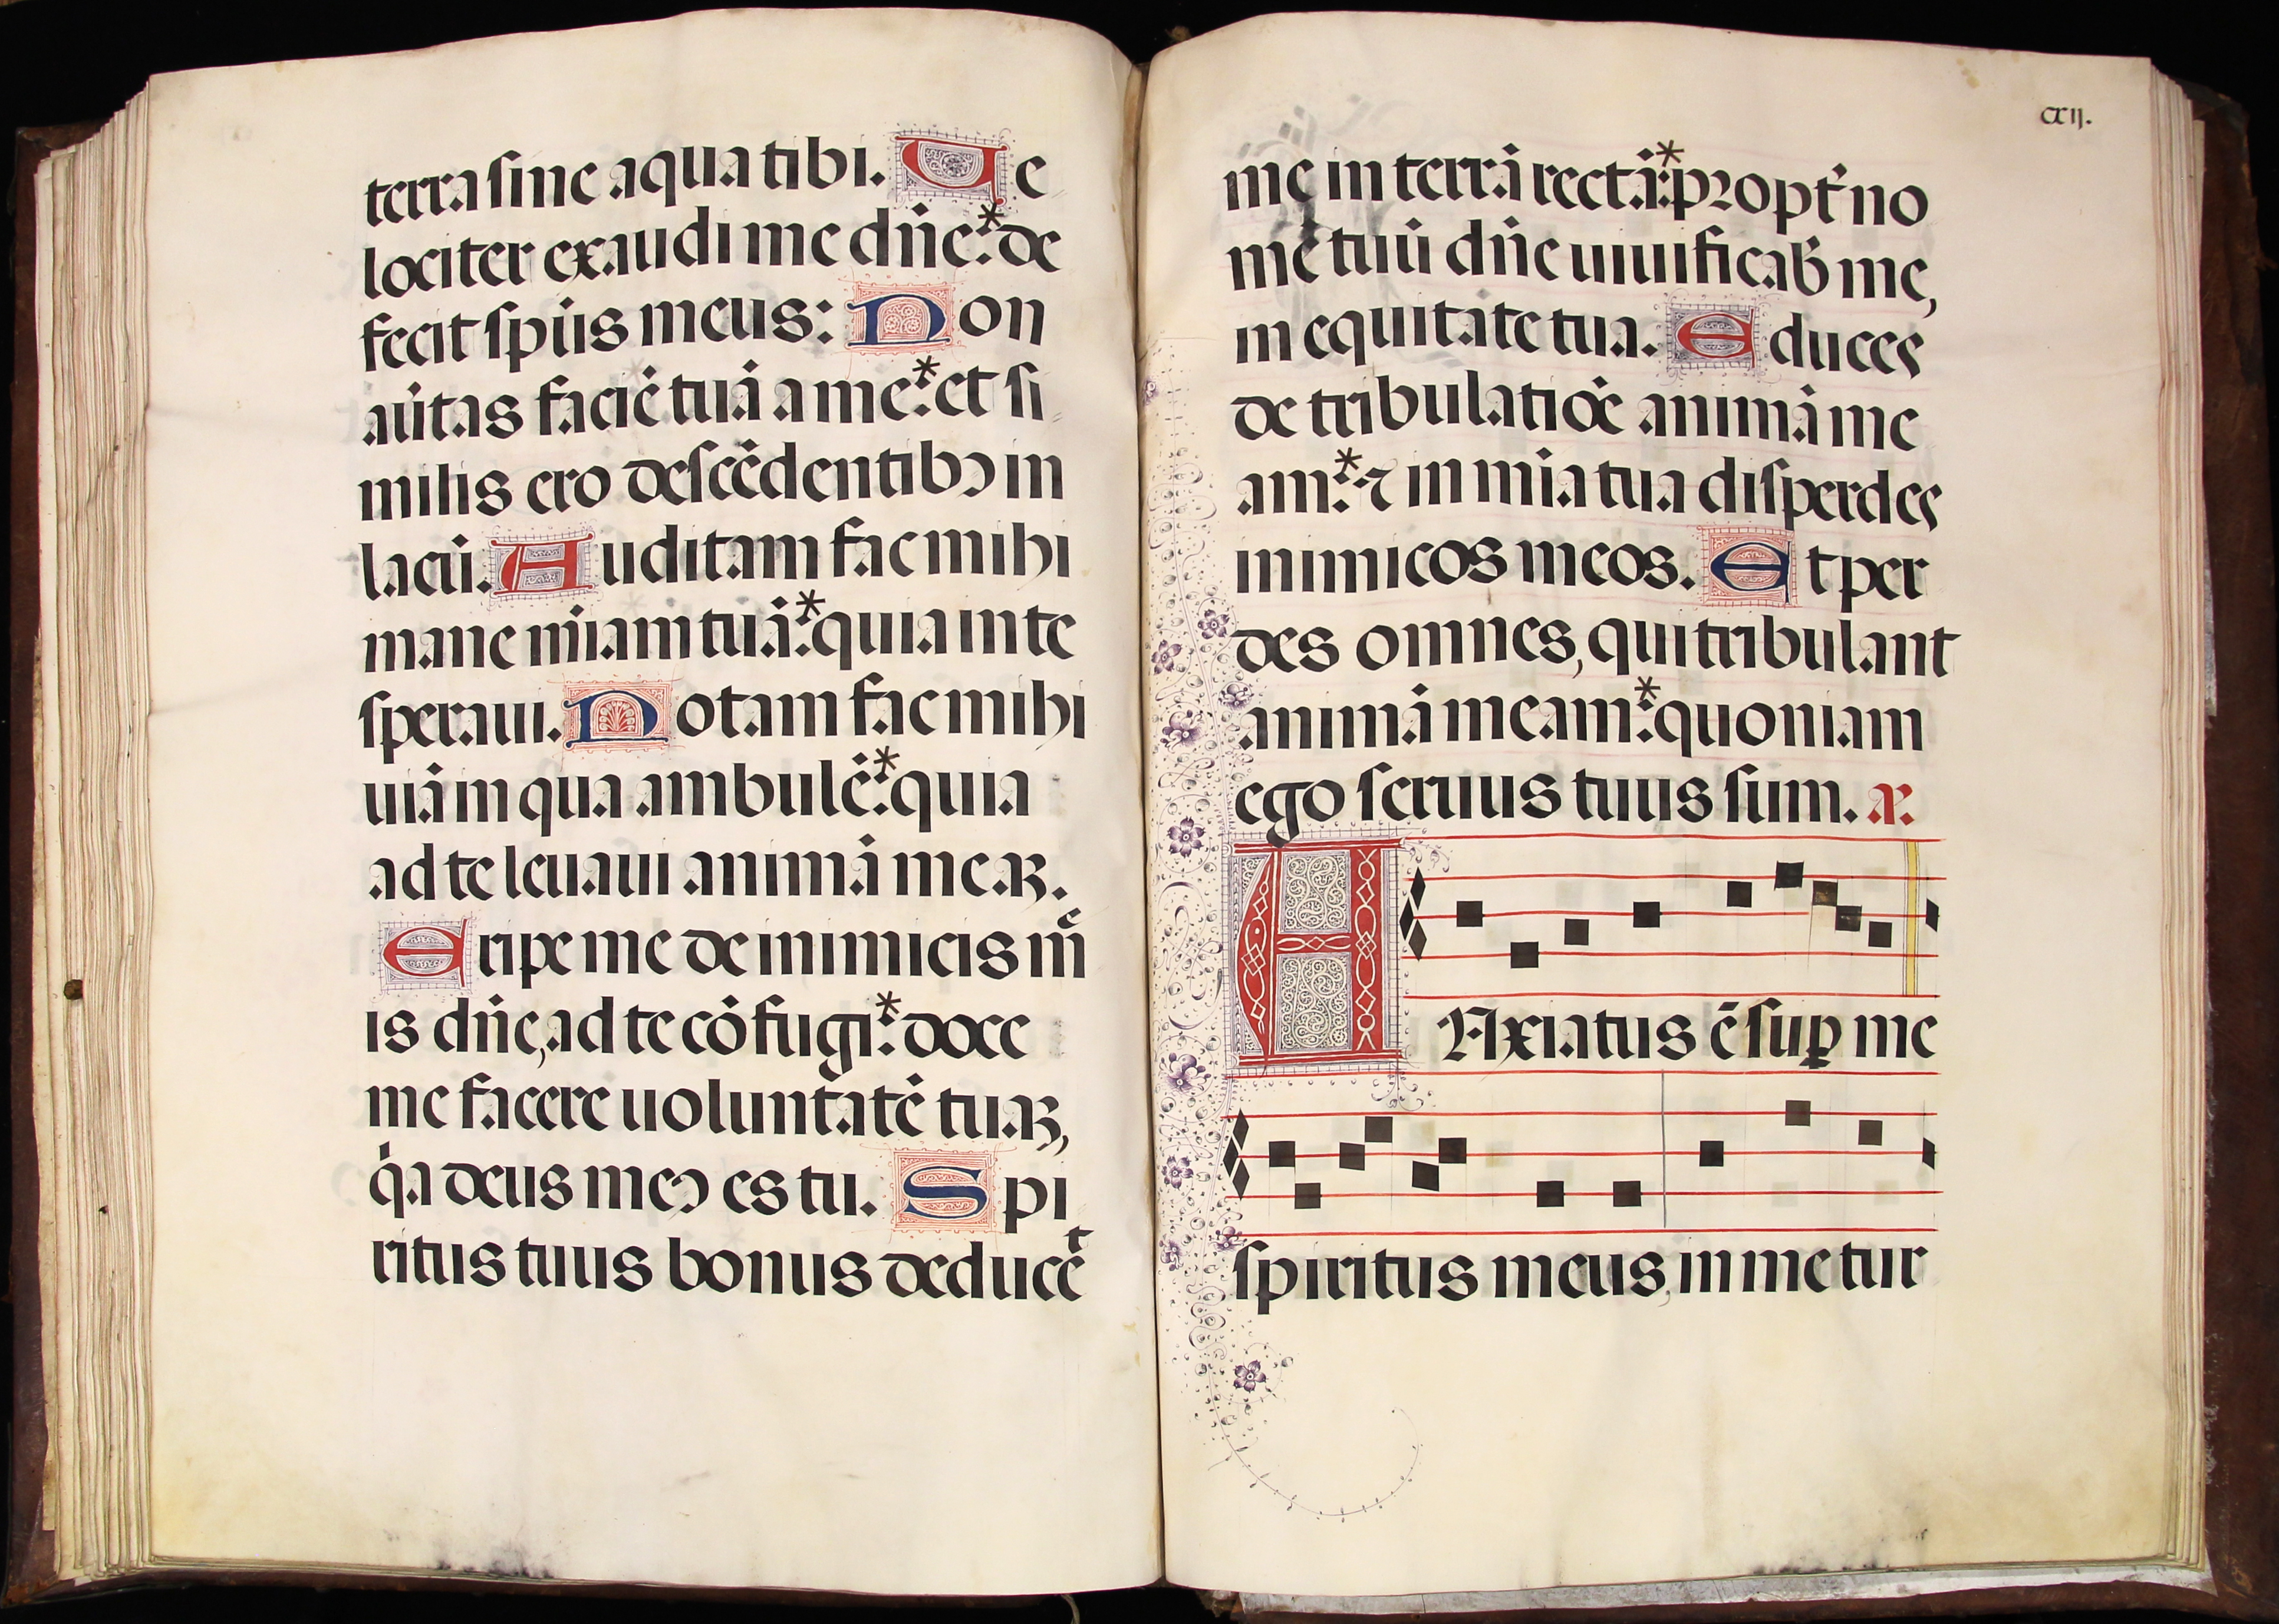 terra sine aqua tibi. Ue
lociter exaudi me dn̄e:* de
fecit spūs meus: Non
aūtas faciē tuā a me:* et si
milis ero descēdentibꝯ in
lacū. Auditam fac mihi
mane m̄iam tuā:* quia in te
speraui. Notam fac mihi
uiā in qua ambulē:* quia
ad te leuaui animā meaꝫ.
Eripe me de inimicis mē
is dn̄e, ad te cōfugi:* doce
me facere uoluntatē tuaꝫ,
q̄a deus meꝯ es tu. Spi
ritus tuus bonus deducet
cxij.
me in terrā rectā:* propt̄ no
mē tuū dn̄e uiuificab̄ me,
in equitate tua. Educes
de tribulatiōe animā me
am:* ⁊ in mīa tua disperdes
inimicos meos. Et per
des omnes, qui tribulant
animā meam:* quoniam
ego seruus tuus sum. añ.
ANxiatus ē suꝑ me
spiritus meus, in me tur